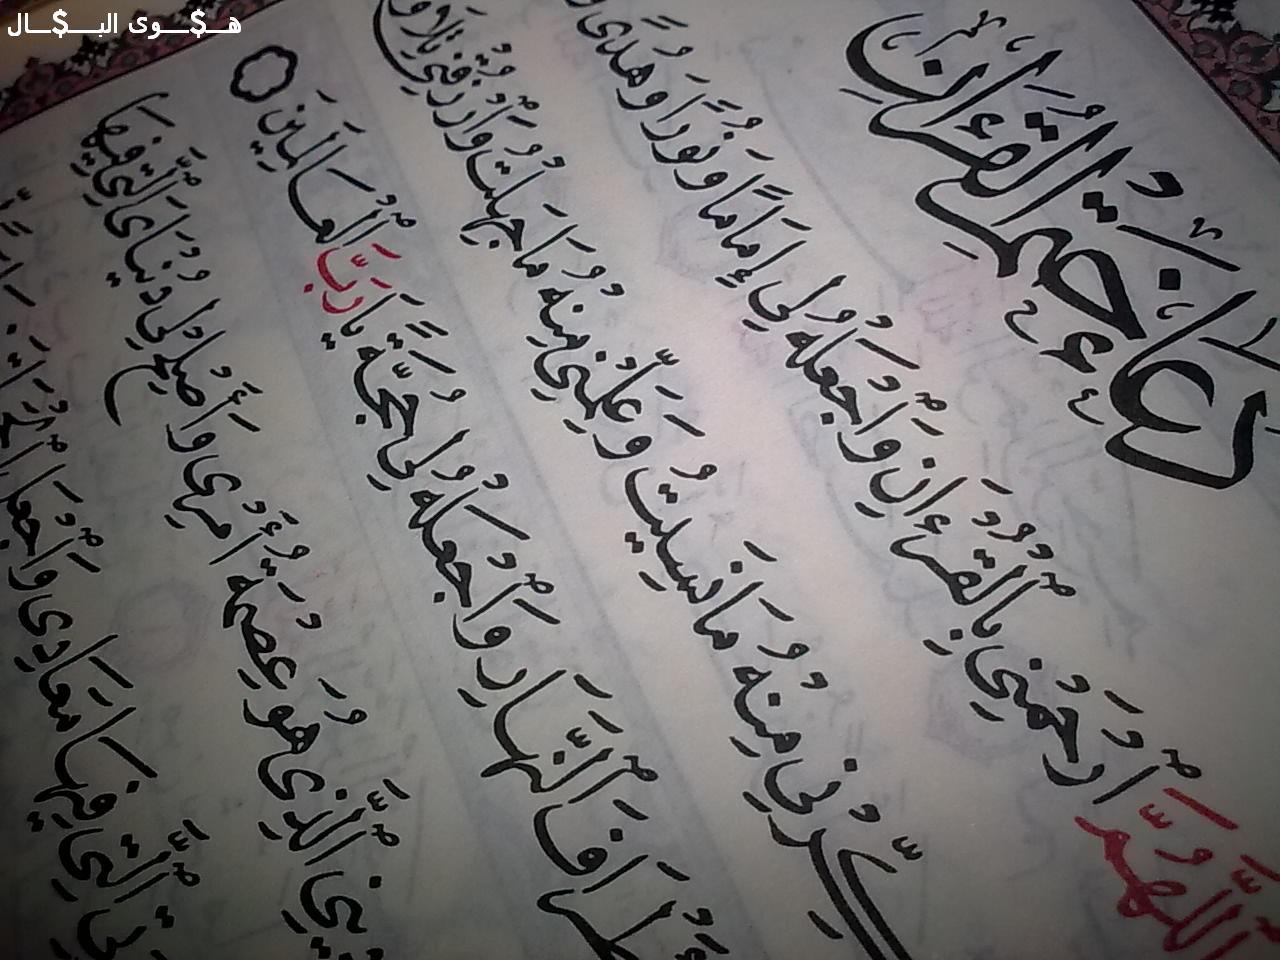 هـ$ــوى البــ$ــال
دُعَاءُ خَتْمِ الْقُرْءَانِ
اللَّهُمَّ ارْحَمْنِي بِالْقُرْءَانِ وَاجْعَلْهُ لِي إِمَامًا وَنُورًا وَهُدًى وَ
كِّرْنِي مِنْهُ مَا نَسِيتُ وَعَلِّمْنِي مِنْهُ مَا جَهِلْتُ وَارْزُقْنِي تِلَاوَ
طْرَافَ النَّهَارِ وَاجْعَلْهُ لِي حُجَّةً يَا رَبَّ الْعَالَمِينَ
دِينِي الَّذِي هُوَ عِصْمَةُ أَمْرِي وَأَصْلِحْ لِي دُنْيَايَ الَّتِي فِيهَا
الَّتِي فِيهَا مَعَادِي وَاجْعَلِ